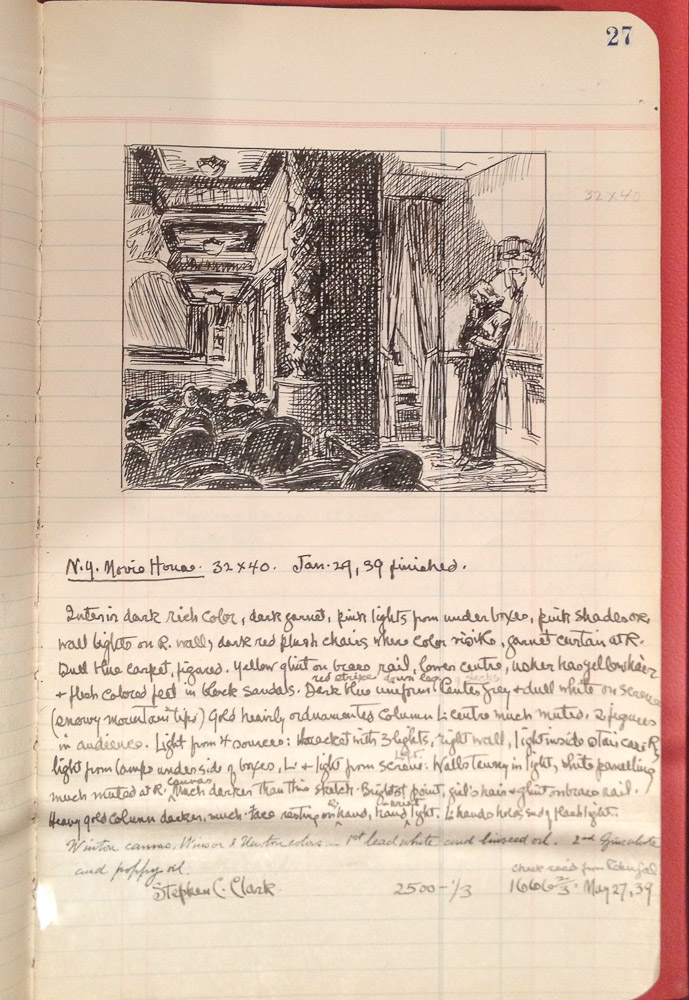 27
32 x 40
N.Y. Movie House. 32 x 40. Jan. 29, 39 finished.
Interior dark rich color, dark garnet, pink lights from under boxes, pink shades on
wall lights on R. wall, dark red plush chairs where color visible, garnet curtain at R.
Dull blue carpet, figured. Yellow glint on brass rail, lower centre, usher has yellow hair
red stripe down leg of slacks
+ flesh colored feet in black sandals. Dark blue uniform. Center grey + dull white on screen
(snowy mountain tips) Gold heavily ornamented column L. centre much muted. 2 figures
in audience. Light from 4 sources: bracket with 3 lights, right wall, light inside stair case R,
light from lamps underside of boxes, L. + light from screen. Walls tawny in light, white panelling
canvas
much muted at R. Much darker than this sketch. Brightest point, girl's hair + glint on brass rail.
Heavy gold column darker, much. Face resting on R. hand, hand in light. L. hand holding flashlight.
Winton canvas, Winsor & Newton colors. 1st lead white and linseed oil. 2nd zinc white
and poppy oil.
check rec'd from Rehn Gal
Stephen C. Clark 2500 - 1/3 1666 2/3. May 27, 39